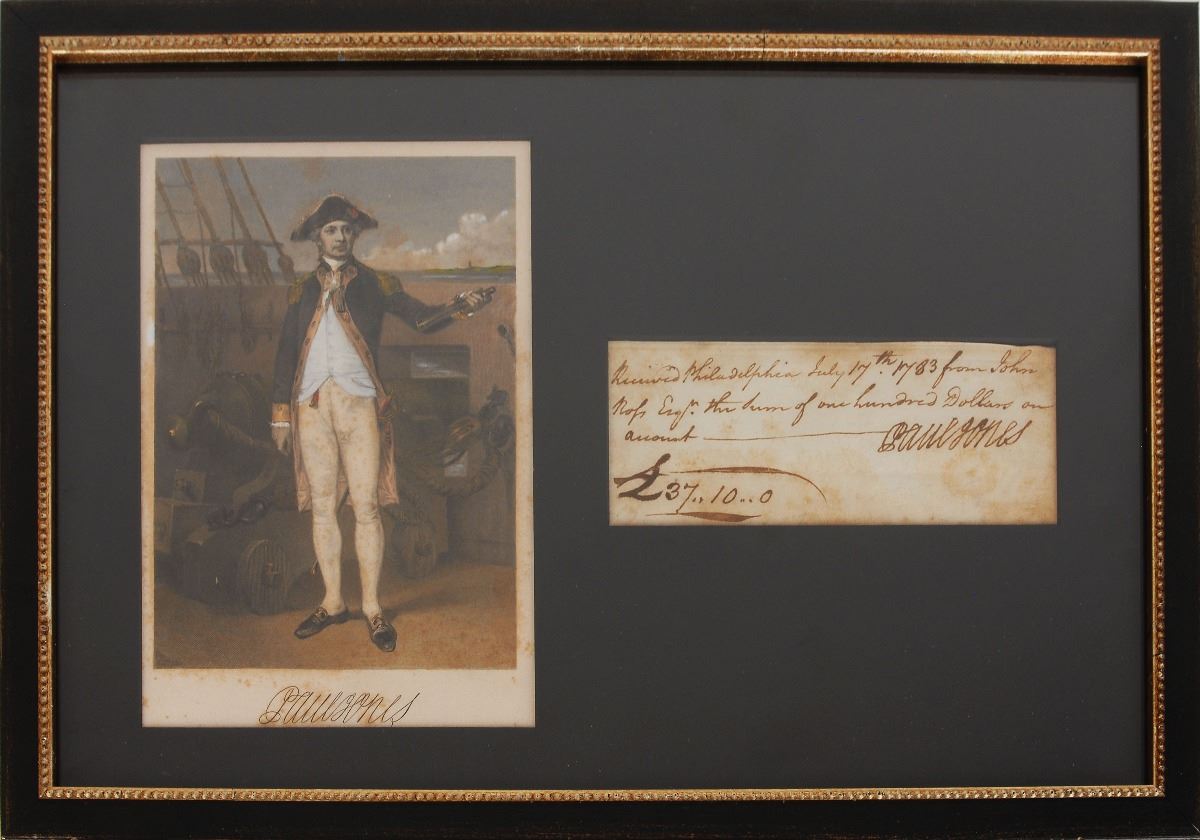 Received Philadelphia July 17th. 1783 from John
Ross Esqr. the sum of one hundred Dollars on
account
PaulJones
£37..10..0
PaulJones